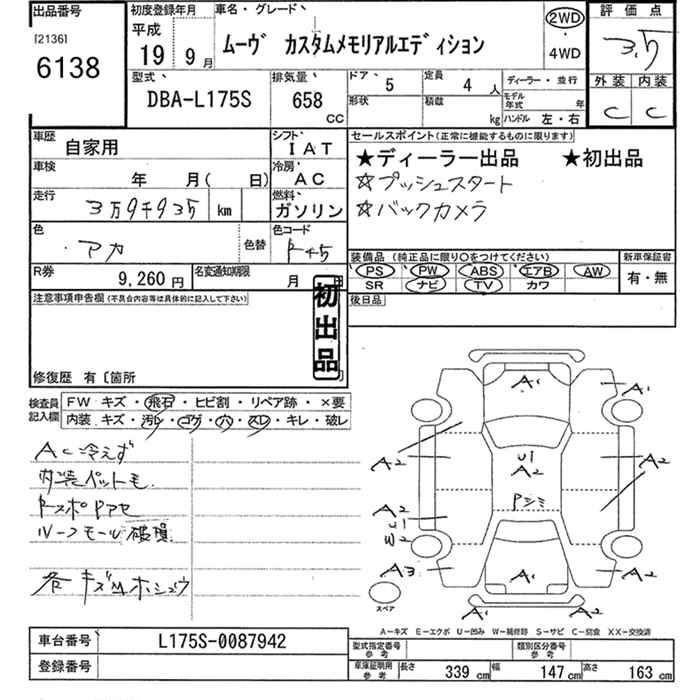 出品番号 初度登録年月 車名・グレード 評価点
[2136] 平成 2WD
6138 19 9月 ムーヴ カスタムメモリアルエディション ・ 3.5
4WD
型式 排気量 ドア 定員 ディーラー・並行 外装 内装
DBA-L175S 658 CC 5 4人 モデル年式 年 C C
形状 積載 kg ハンドル 左・右
車歴 自家用 シフト IAT セールスポイント(正常に機能するものに限ります)
車検 年 月( 日) 冷房 AC ★ディーラー出品 ★初出品
走行 3万9千935 km 燃料 ガソリン ☆プッシュスタート
☆バックカメラ
色 アカ 色替 色コード R45
装備品(純正品に限り○をつけてください) 新車保証書
R券 9,260円 名変通知期限 月 日 PS PW ABS エアB AW 有・無
SR ナビ TV カワ
注意事項申告欄(不具合内容等は具体的に記入して下さい) 初出品 後日品
修復歴 有〔箇所
検査員記入欄 FW キズ・飛石・ヒビ割・リペア跡・×要
内装 キズ・汚レ・コゲ・穴・スレ・キレ・破レ
AC冷えず
内装ペット毛
ルーフモール破損
各キズ
A1 A1
A2 U1 A2 A2
Pシミ
A2
U1
A3 A1 A2
A2 A2
スペア
A-キズ E-エクボ U-凹み W-補修跡 S-サビ C-腐食 XX-交換済
車台番号 L175S-0087942 型式指定番号 参考 類別区分番号 参考
登録番号 車庫証明用 参考 長さ 339cm 幅 147cm 高さ 163cm